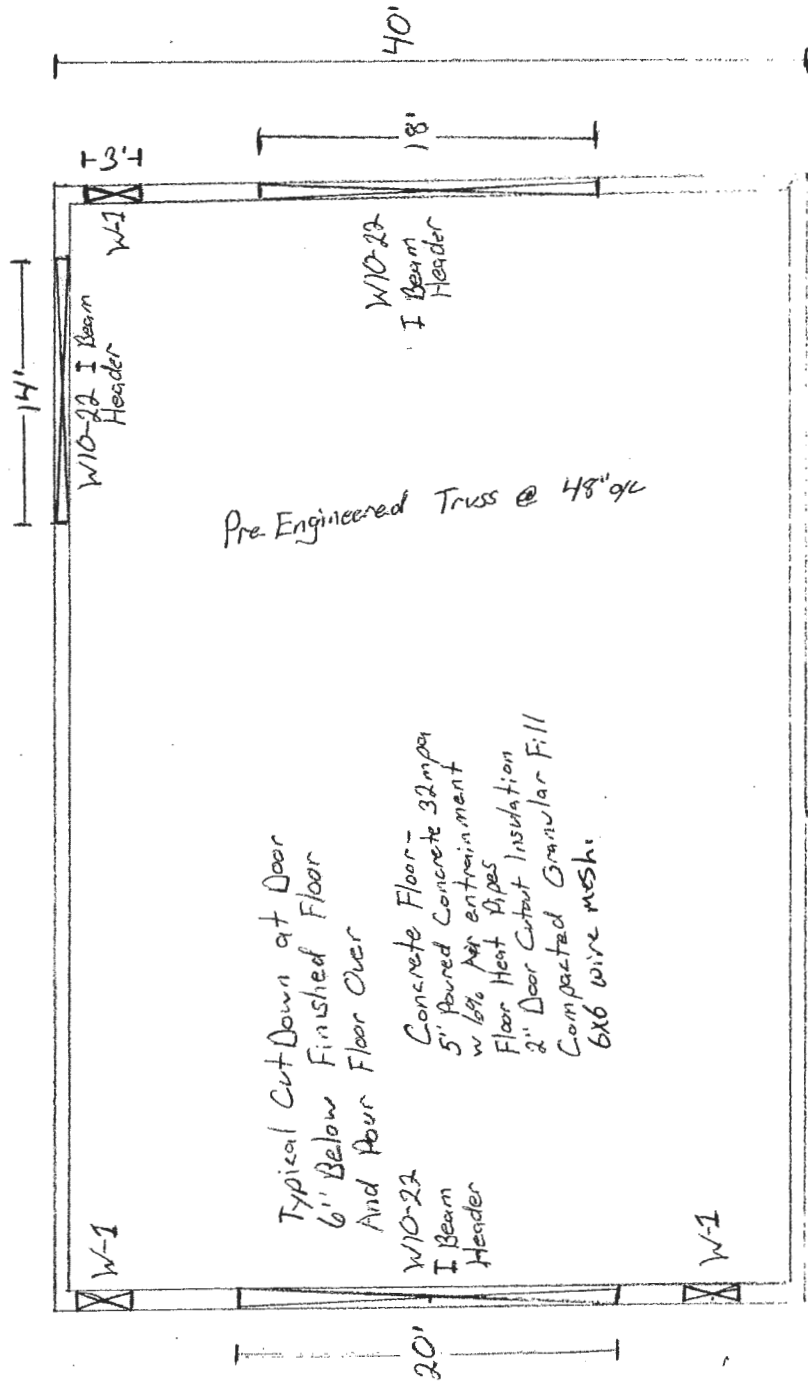 40'
14'
3'
W-1
W10-22 I Beam
Header
18'
W10-22
I Beam
Header
Pre-Engineered Truss @ 48" o/c
Typical Cut Down at Door
6" Below Finished Floor
And Pour Floor Over
Concrete Floor-
5" Poured Concrete 32mpa
w 6% Air entrainment
Floor Heat Pipes
2" Door Cutout Insulation
Compacted Granular Fill
6x6 wire mesh.
W-1
W10-22
I Beam
Header
W-1
20'